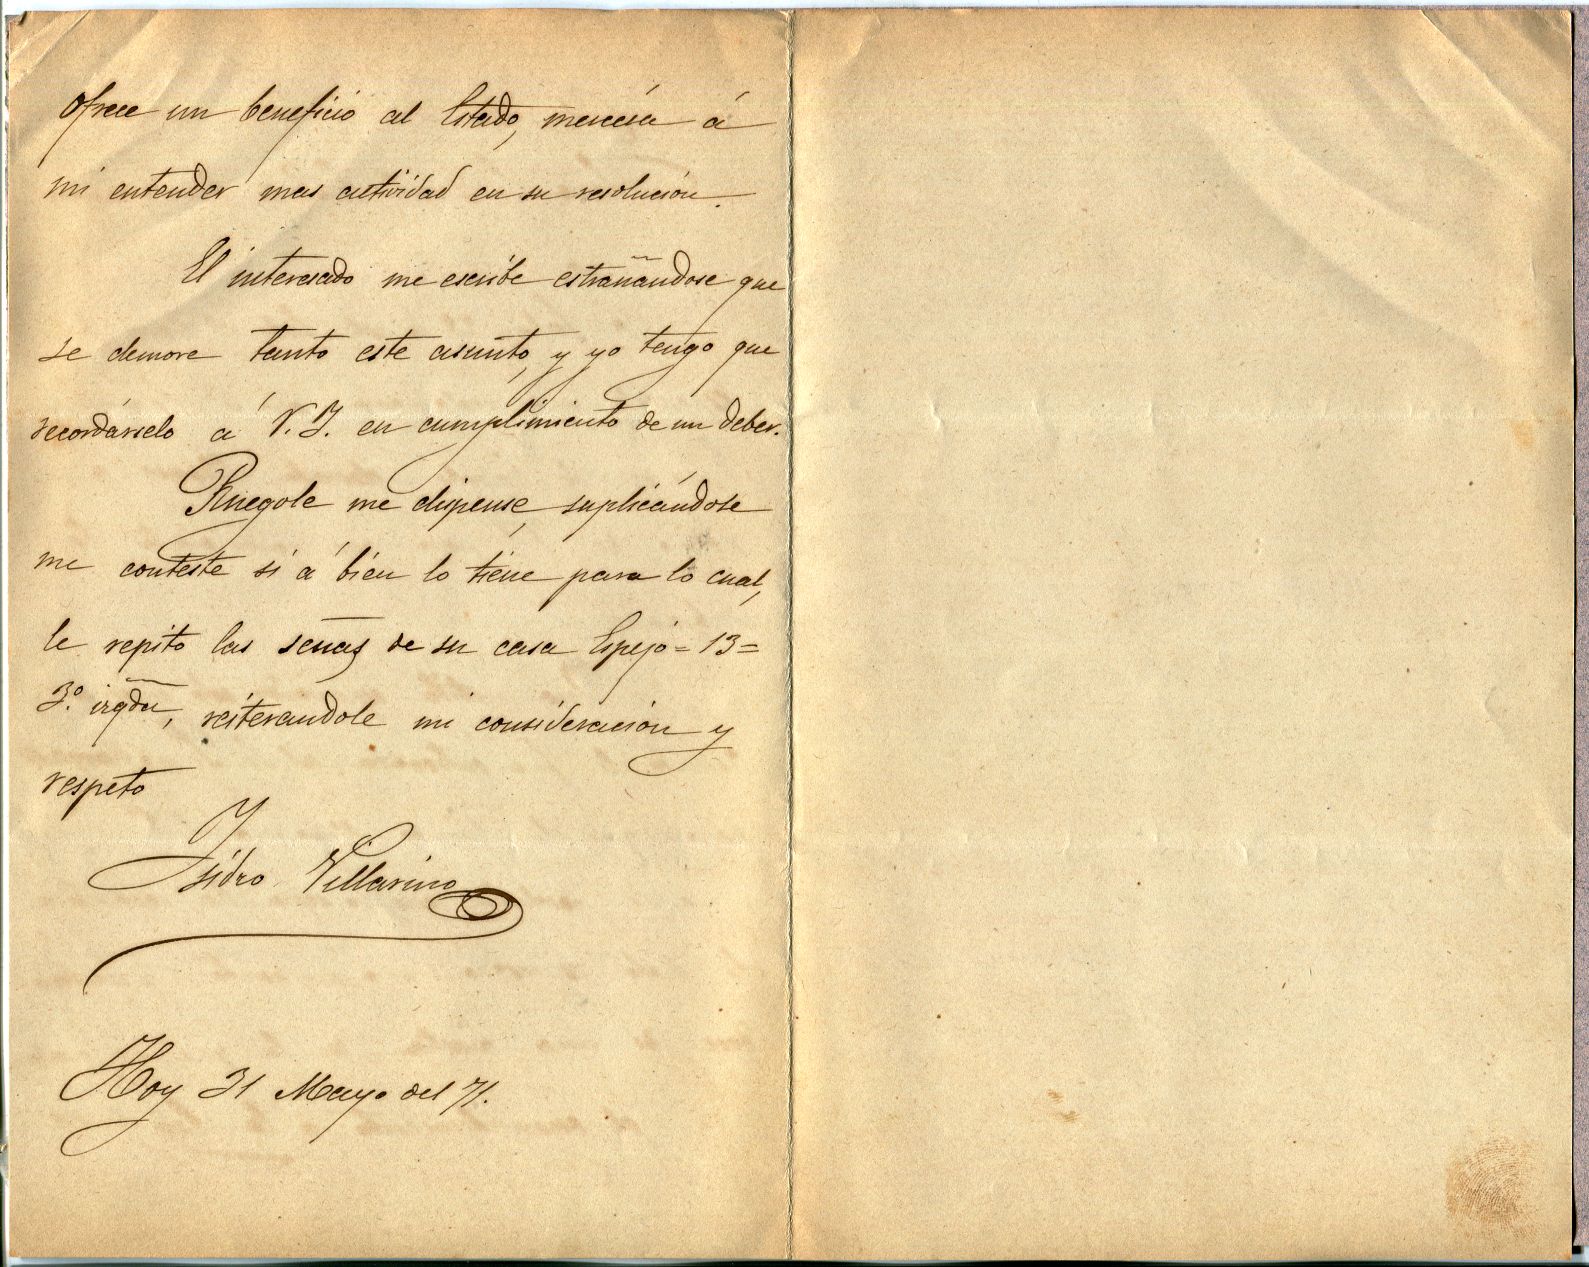 ofrece un beneficio al Estado, merecía á
mi entender mas actividad en su resolución.
El interesado me escribe estrañándose que
se demore tanto este asunto, y yo tengo que
recordárselo á V.I. en cumplimiento de un deber.
Ruegole me dispense, suplicándole
me conteste si á bien lo tiene para lo cual,
le repito las señas de su casa Espejo = 13 =
3º. izqda, reiterandole mi consideración y
respeto
Isidro Villarino
Hoy 31 Mayo del 71.